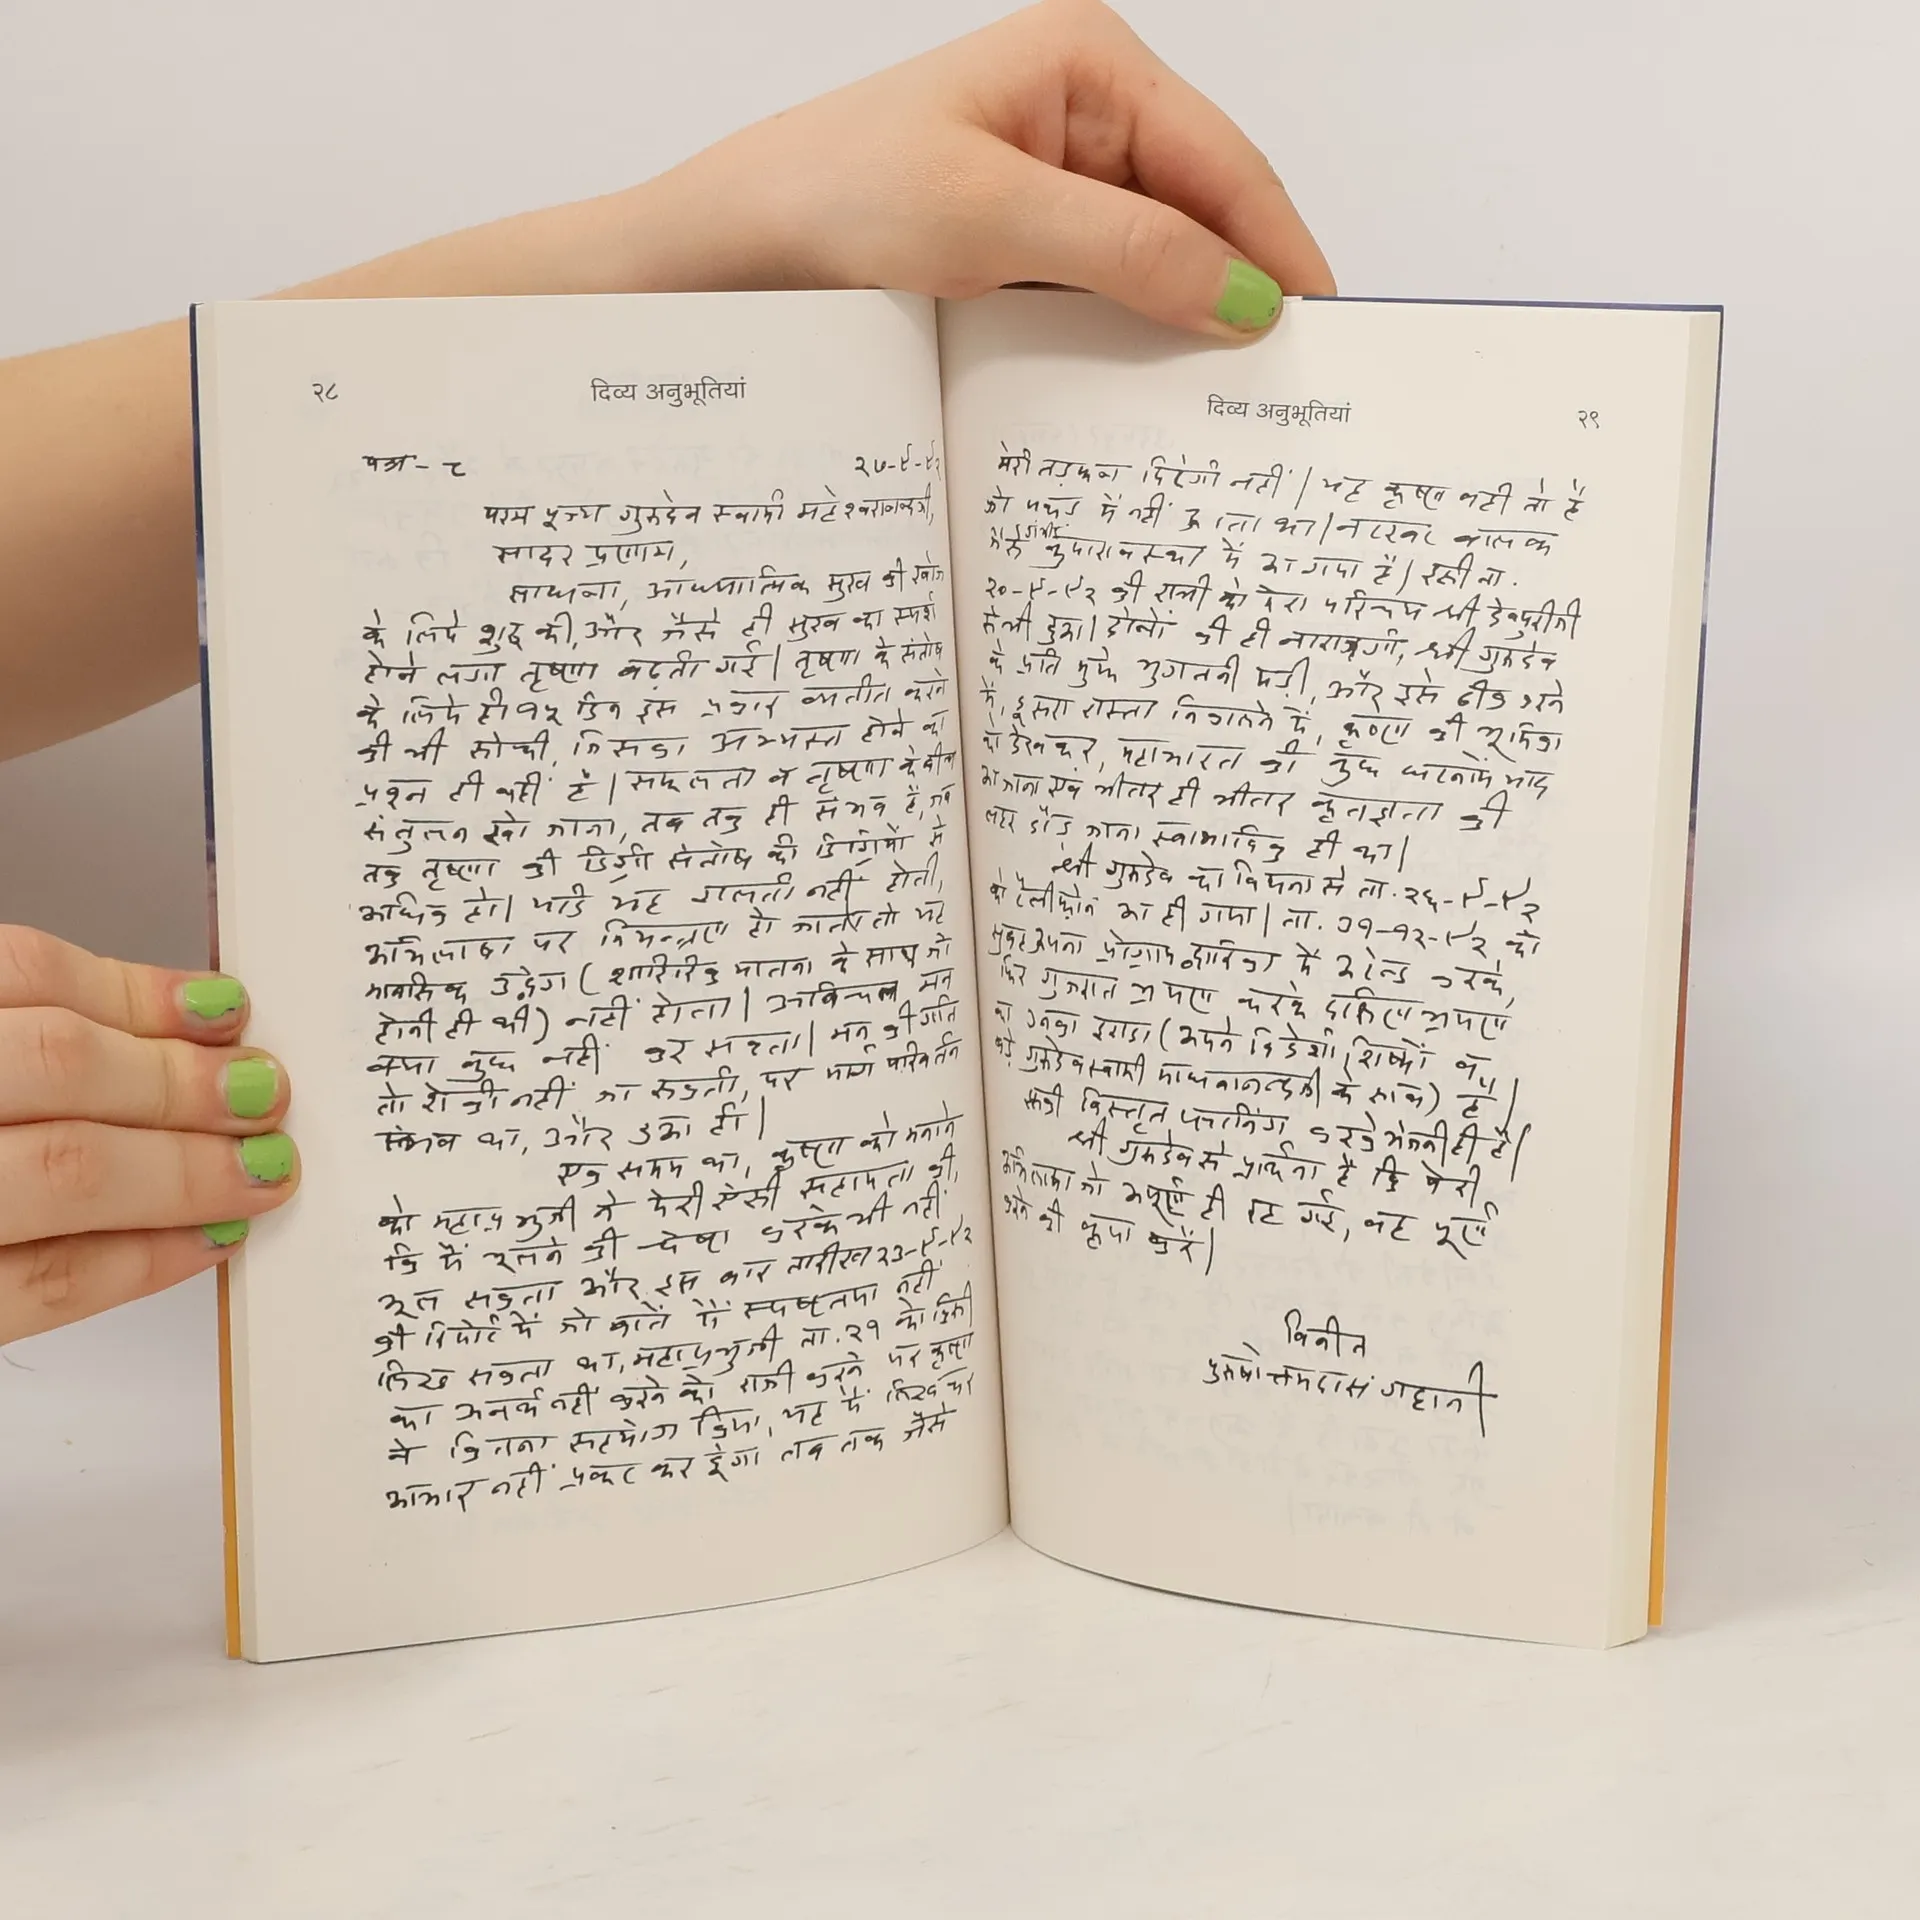 २८
दिव्य अनुभूतियां
पत्र - ८
२७-९-९२
परम पूज्य गुरुदेव स्वामी महेश्वरानन्दजी,
सादर प्रणाम,
साधना, आध्यात्मिक सुख की खोज
के लिये शुरू की, और जैसे ही सुख का स्पर्श
होने लगा तृष्णा बढ़ती गई| तृष्णा के संतोष
के लिये ही १५ दिन इस प्रकार व्यतीत करने
की भी सोची, जिसका अभ्यस्त होने का
प्रश्न ही नहीं है| सफलता व तृष्णा के बीच
संतुलन खो जाना, तब तक ही संभव है, जब
तक तृष्णा की डिग्री संतोष की डिग्रियों से
अधिक हो| यदि यह गलती नहीं होती,
अभिलाषा पर नियन्त्रण हो जाता तो यह
मानसिक उद्वेग (शारिरिक यातना के साथ जो
होनी ही थी) नहीं होता| अविचल मन
क्या कुछ नहीं कर सकता| मन की गति
तो रोकी नहीं जा सकती, पर मार्ग परिवर्तन
संभव था, और हुआ ही|
एक समय था, कृष्ण को मनाने
को महाप्रभुजी ने मेरी ऐसी सहायता की,
कि मैं भूलने की चेष्टा करके भी नहीं
भूल सकता और इस बार तारीख २३-९-९२
की रिपोर्ट में जो बातें मैं स्पष्टतया नहीं
लिख सकता था, महाप्रभुजी ता. २१ को किसी
का अनर्थ नहीं करने को राजी करने पर कृष्ण
ने कितना सहयोग दिया, यह मैं लिख कर
आभार नहीं प्रकट कर दूंगा तब तक जैसे
दिव्य अनुभूतियां
२९
मेरी तड़फन मिटेगी नहीं| यह कृष्ण वही तो है
जो पकड़ में नहीं आता था| नटखट बालक
जैसे गंभीर कुमारावस्था में आ गया है| इसी ता.
२०-९-९२ की रात्री को मेरा परिचय श्री देवपुरीजी
से भी हुआ| दोनों की ही नाराजगी, श्री गुरुदेव
के प्रति मुझे भुगतनी पड़ी, और इसे ठीक करने
में, दूसरा रास्ता निकालने में, कृष्ण की भूमिका
को देखकर, महाभारत की कुछ घटनायें याद
आ जाना एवं भीतर ही भीतर कृतज्ञता की
लहर दौड़ जाना स्वाभाविक ही था|
श्री गुरुदेव का वियना से ता. २६-९-९२
को टैलीफ़ोन आ ही गया| ता. ३१-१२-९२ को
सुबह अपना प्रोग्राम द्वारिका में अटेन्ड करके,
फिर गुजरात भ्रमण करके दक्षिण भ्रमण
का उनका इरादा (अपने विदेशी शिष्यों व
बड़े गुरुदेव स्वामी माधवानन्दजी के साथ) है|
विस्तृत करके भेजनी ही है|
श्री गुरुदेव से प्रार्थना है कि मेरी
अभिलाषा जो अपूर्ण ही रह गई, वह पूर्ण
करने की कृपा करें|
विनीत
पुरुषोत्तमदास गहानी